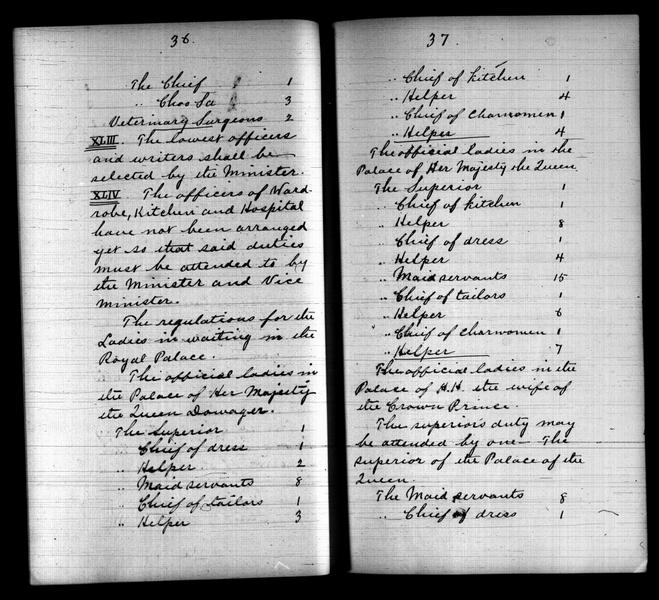 36.
The Chief 1
„ Choo Sa 3
Veterinary Surgeons 2
XLIII. The lowest officers
and writers shall be
selected by the Minister.
XLIV. The officers of Ward-
robe, Kitchen and Hospital
have not been arranged
yet so that said duties
must be attended to by
the Minister and Vice
Minister.
The regulations for the
Ladies in waiting in the
Royal Palace.
The official ladies in
the Palace of Her Majesty
the Queen Dowager.
The Superior 1
„ Chief of dress 1
„ Helper 2
„ Maid servants 8
„ Chief of tailors 1
„ Helper 3
37.
„ Chief of kitchen 1
„ Helper 4
„ Chief of Charwomen 1
„ Helper 4
The official ladies in the
Palace of Her Majesty the Queen
The Superior 1
„ Chief of kitchen 1
„ Helper 8
„ Chief of dress 1
„ Helper 4
„ Maid servants 15
„ Chief of tailors 1
„ Helper 6
„ Chief of Charwomen 1
„ Helper 7
The official ladies in the
Palace of H.H. the wife of
the Crown Prince.
The superior's duty may
be attended by one - The
superior of the Palace of the
Queen.
The Maid servants 8
„ Chief of dress 1